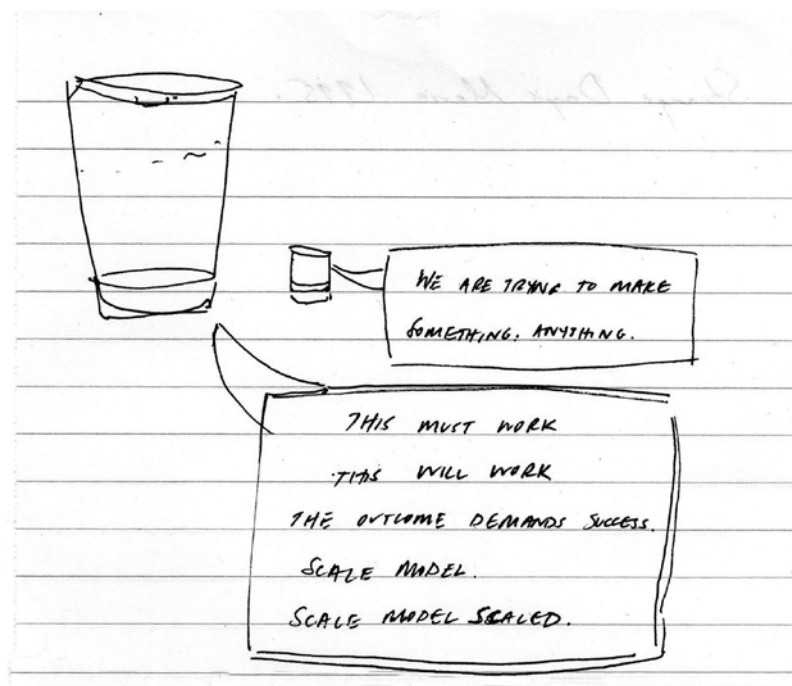 WE ARE TRYING TO MAKE
SOMETHING. ANYTHING.
THIS MUST WORK
THIS WILL WORK
THE OUTCOME DEMANDS SUCCESS.
SCALE MODEL.
SCALE MODEL SCALED.